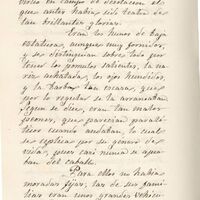 virtió en campo de desolacion el
que antes habia sido teatro de
tan brillantes glorias.
Eran los hunos de baja
estatura, aunque muy fornidos,
y se distinguian sobre todo por
tener los pómulos salientes, la na
riz achatada, los ojos hundidos,
y la barba tan escasa, que
por lo regular se la arrancaban.
Segun se dice, eran tan malos
peones, que parecian paraliti
cos cuando andaban, lo cual
se esplica por su género de
vida, pues casi nunca se apea
ban del caballo.
Para ellos no habia
moradas fijas; las de sus fami
lias eran unos grandes vehicu